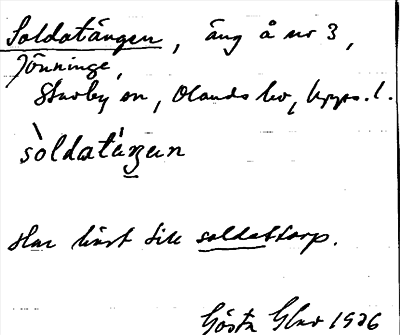 Soldatängen, äng å nr 3,
Jönninge,
Skuby sn, Olands hd, Upps. l.
sòldatáŋen
Har hört till soldattorp.
Gösta 1936